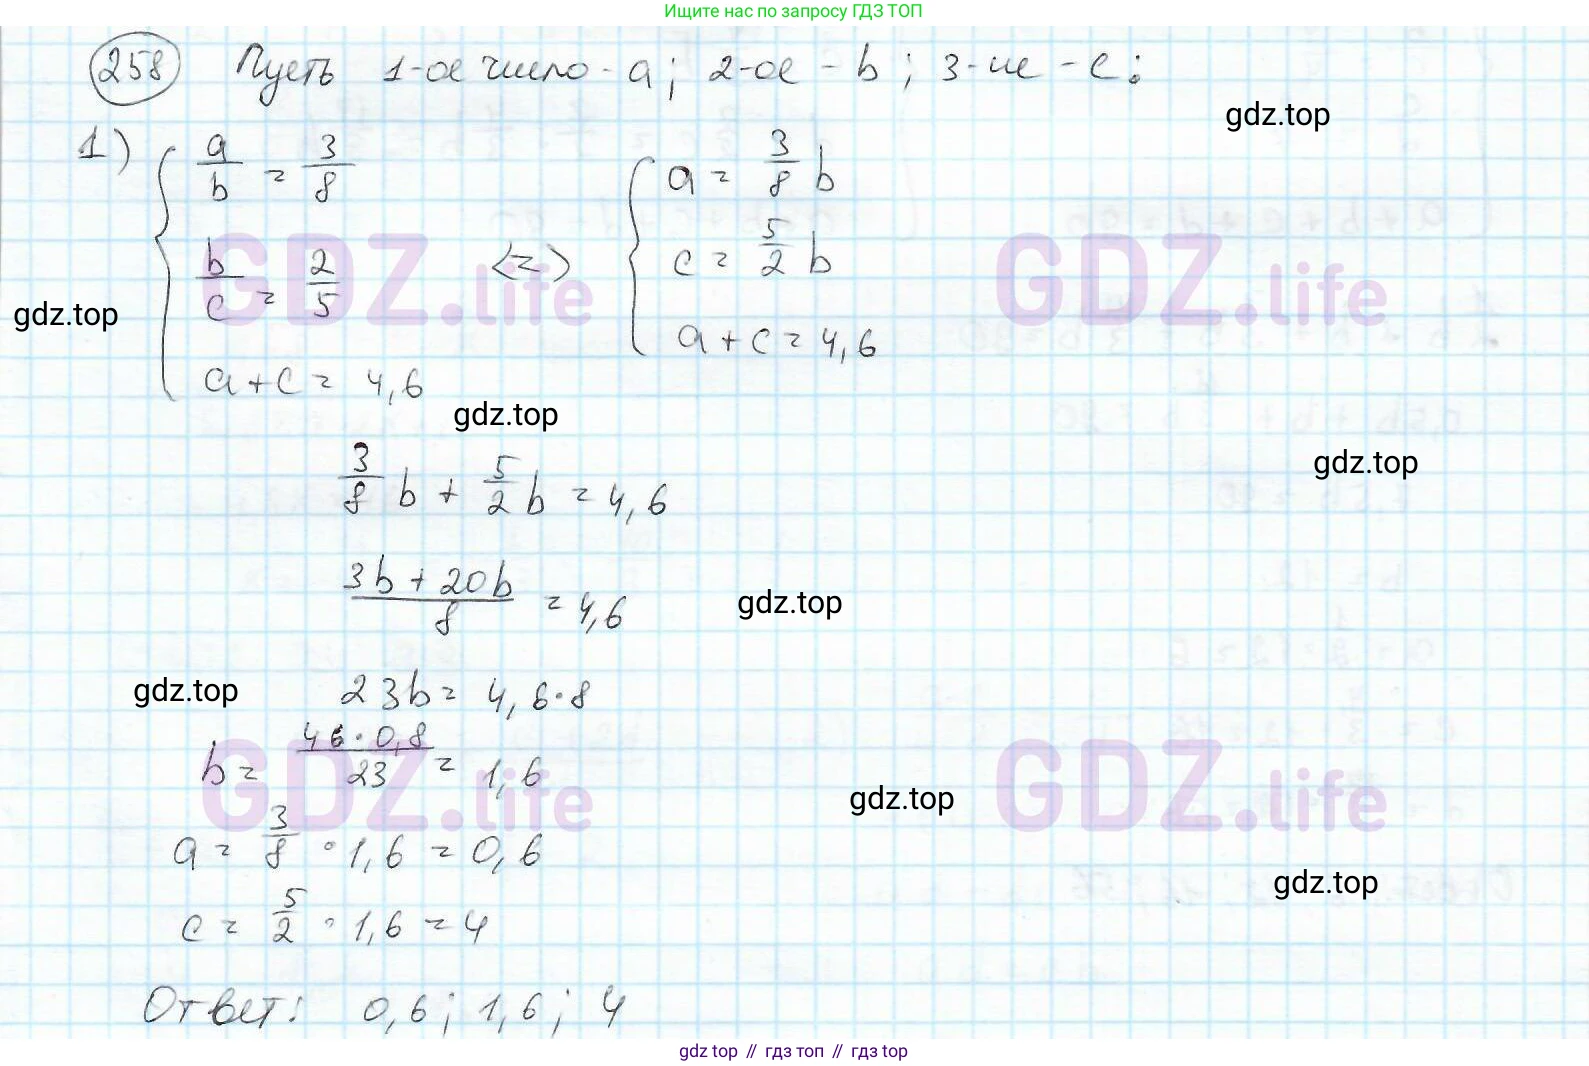 Ищите нас по запросу ГДЗ ТОП
258 Пусть 1-ое число - a; 2-ое - b; 3-ие - c:
gdz.top
1) { a/b = 3/8 { a = 3/8 b
b/c = 2/5 <=> c = 5/2 b
a + c = 4,6 a + c = 4,6
GDZ.life GDZ.life
gdz.top
gdz.top
gdz.top
3/8 b + 5/2 b = 4,6
(3b + 20b)/8 = 4,6
gdz.top
gdz.top
23b = 4,6 · 8
b = (46 · 0,8)/23 = 1,6
GDZ.life GDZ.life
gdz.top
a = 3/8 · 1,6 = 0,6
gdz.top
c = 5/2 · 1,6 = 4
Ответ: 0,6; 1,6; 4
gdz top // гдз топ // гдз top